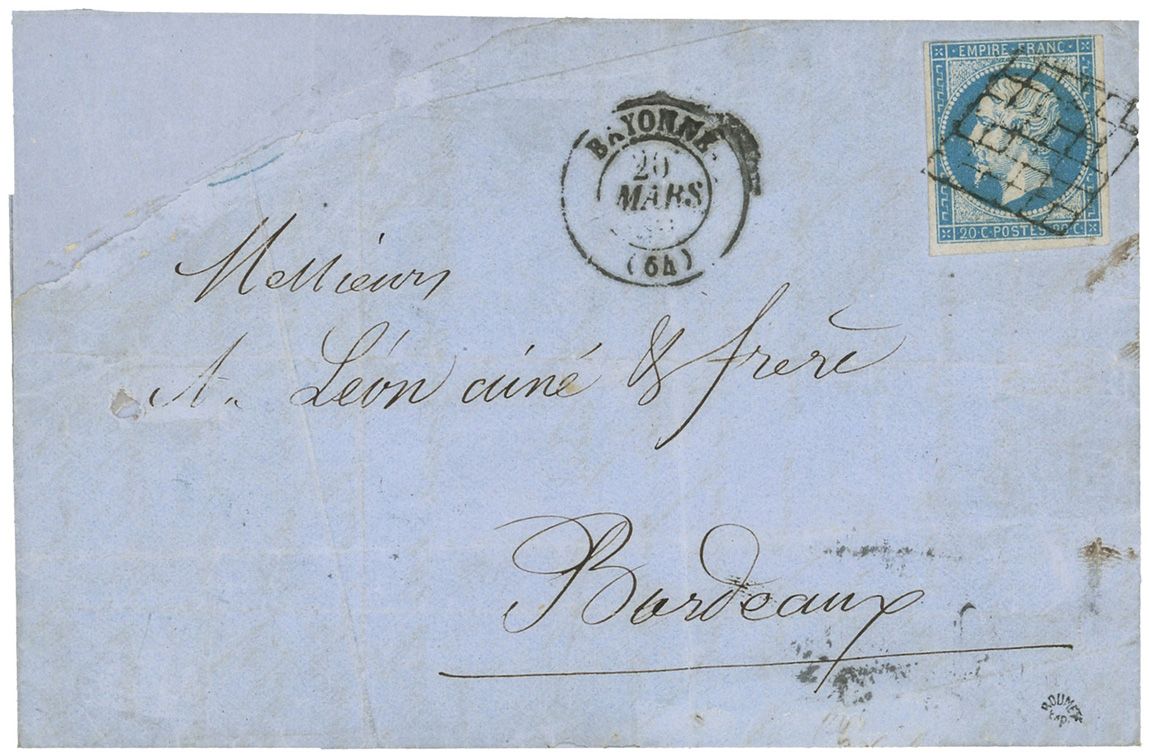 EMPIRE FRANC
20·C·POSTES·20·C
BAYONNE
20
MARS
(64)
Messieurs
A. Léon ainé & frère
Bordeaux
ROUMET
EXP.